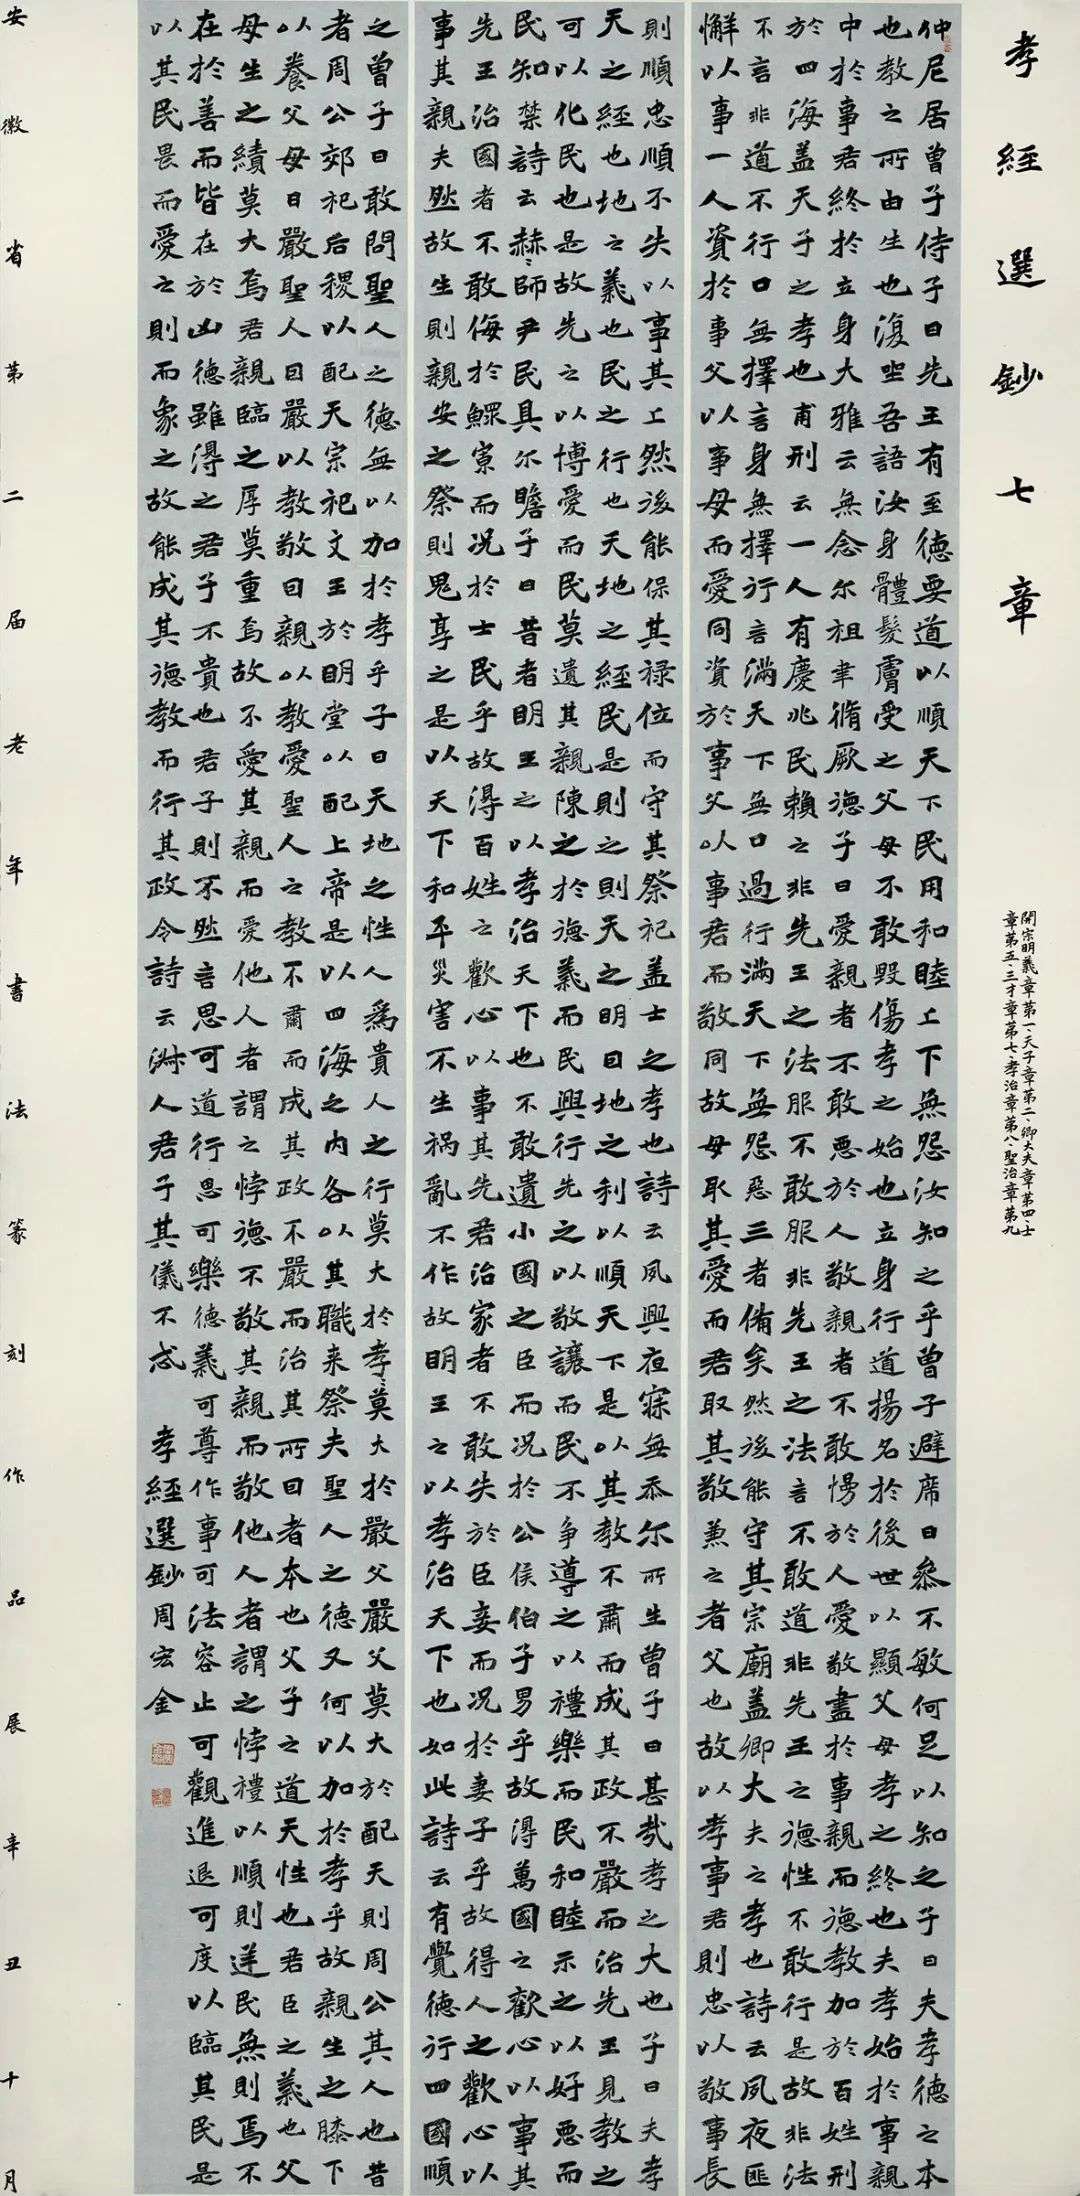 孝經選鈔七章
開宗明義章第一、天子章第二、卿大夫章第四、士
章第五、三才章第七、孝治章第八、聖治章第九
仲尼居曾子侍子曰先王有至德要道以順天下民用和睦上下無怨汝知之乎曾子避席曰參不敏何足以知之子曰夫孝德之本
也教之所由生也復坐吾語汝身體髮膚受之父母不敢毀傷孝之始也立身行道揚名於後世以顯父母孝之終也夫孝始於事親
中於事君終於立身大雅云無念尔祖聿脩厥德子曰愛親者不敢惡於人敬親者不敢慢於人愛敬盡於事親而德教加於百姓刑
於四海盖天子之孝也甫刑云一人有慶兆民賴之非先王之法服不敢服非先王之法言不敢道非先王之德性不敢行是故非法
不言非道不行口無擇言身無擇行言滿天下無口過行滿天下無怨惡三者備矣然後能守其宗廟盖卿大夫之孝也詩云夙夜匪
懈以事一人資於事父以事母而愛同資於事父以事君而敬同故母取其愛而君取其敬兼之者父也故以孝事君則忠以敬事長
則順忠順不失以事其上然後能保其祿位而守其祭祀盖士之孝也詩云夙興夜寐無忝尔所生曾子曰甚哉孝之大也子曰夫孝
天之經也地之義也民之行也天地之經民是則之則天之明因地之利以順天下是以其教不肅而成其政不嚴而治先王見教之
可以化民也是故先之以博愛而民莫遺其親陳之於德義而民興行先之以敬讓而民不爭導之以禮樂而民和睦示之以好惡而
民知禁詩云赫〻師尹民具尔瞻子曰昔者明王之以孝治天下也不敢遺小國之臣而況於公侯伯子男乎故得萬國之歡心以事其
先王治國者不敢侮於鰥寡而況於士民乎故得百姓之歡心以事其先君治家者不敢失於臣妾而況於妻子乎故得人之歡心以
事其親夫然故生則親安之祭則鬼享之是以天下和平災害不生禍亂不作故明王之以孝治天下也如此詩云有覺德行四國順
之曾子曰敢問聖人之德無以加於孝乎子曰天地之性人為貴人之行莫大於孝〻莫大於嚴父嚴父莫大於配天則周公其人也昔
者周公郊祀后稷以配天宗祀文王於明堂以配上帝是以四海之內各以其職来祭夫聖人之德又何以加於孝乎故親生之膝下
以養父母日嚴聖人因嚴以教敬因親以教愛聖人之教不肅而成其政不嚴而治其所因者本也父子之道天性也君臣之義也父
母生之績莫大焉君親臨之厚莫重焉故不愛其親而愛他人者謂之悖德不敬其親而敬他人者謂之悖禮以順則逆民無則焉不
在於善而皆在於凶德雖得之君子不貴也君子則不然言思可道行思可樂德義可尊作事可法容止可觀進退可度以臨其民是
以其民畏而愛之則而象之故能成其德教而行其政令詩云淑人君子其儀不忒 孝經選鈔周宏金
安徽省第二届老年書法篆刻作品展辛丑十月